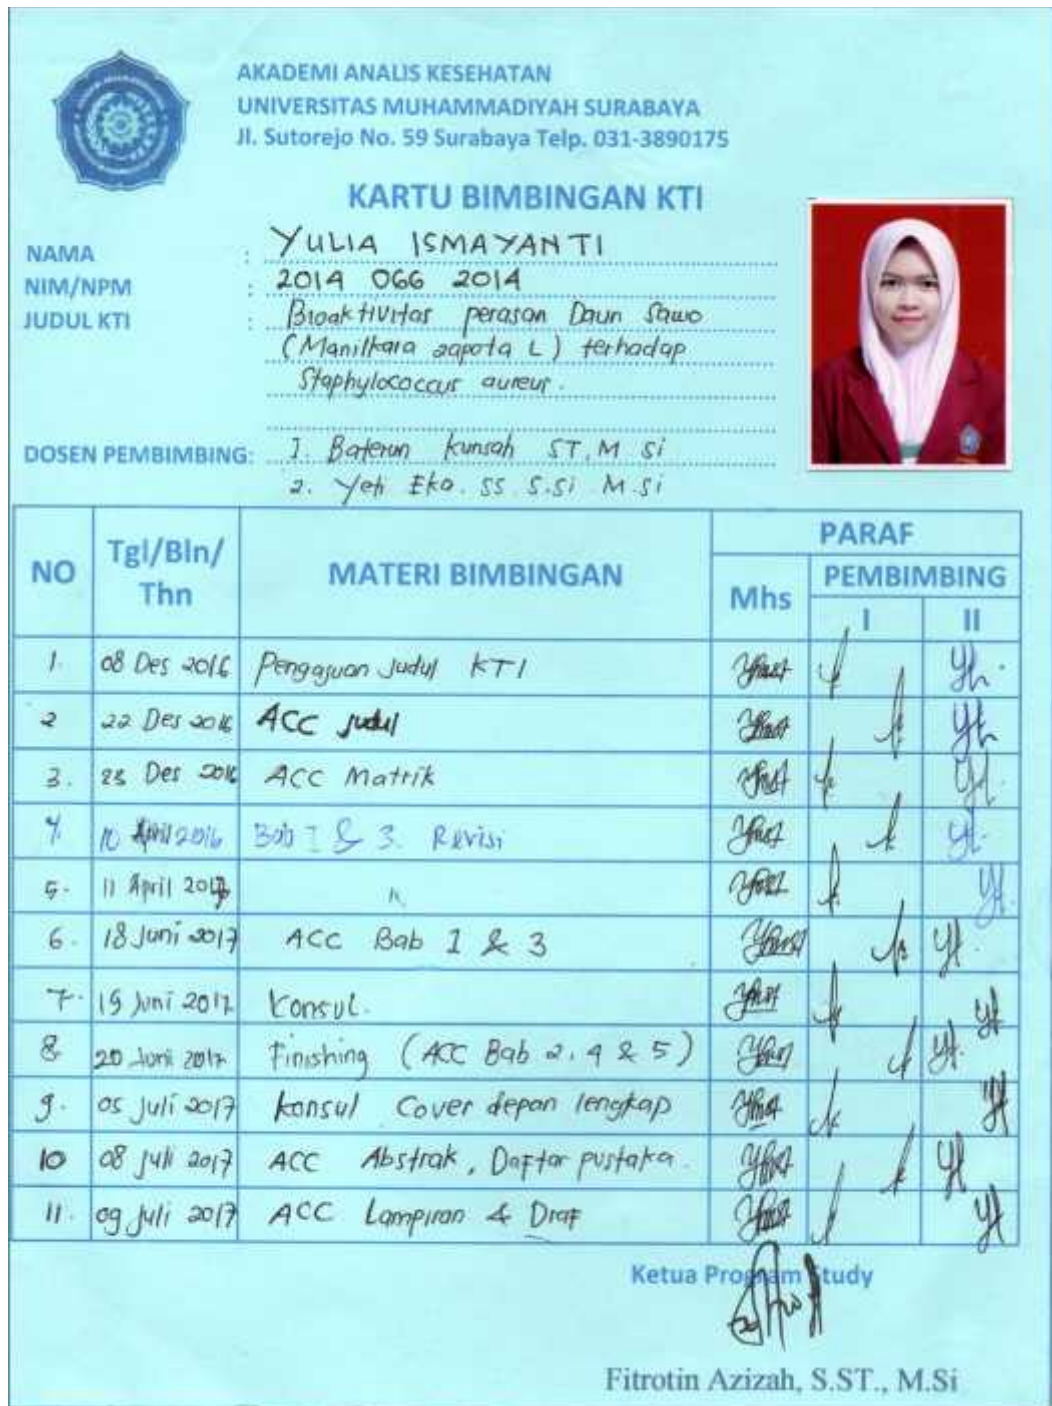 AKADEMI ANALIS KESEHATAN
UNIVERSITAS MUHAMMADIYAH SURABAYA
Jl. Sutorejo No. 59 Surabaya Telp. 031-3890175
KARTU BIMBINGAN KTI
NAMA : YULIA ISMAYANTI
NIM/NPM : 2014 066 2014
JUDUL KTI : Bioaktivitas perasan Daun Sawo
(Manilkara zapota L) terhadap
Staphylococcus aureus.
DOSEN PEMBIMBING: 1. Baterun Kunsah ST, M Si
2. Yeti Eka. SS. S.Si M.Si
NO Tgl/Bln/Thn MATERI BIMBINGAN PARAF
Mhs PEMBIMBING
I II
1. 08 Des 2016 Pengajuan Judul KTI
2 22 Des 2016 ACC Judul
3. 23 Des 2016 ACC Matrik
4. 10 April 2016 Bab I & 3. Revisi
5. 11 April 2017 "
6. 18 Juni 2017 ACC Bab 1 & 3
7. 19 Juni 2017 Konsul.
8. 20 Juni 2017 Finishing (ACC Bab 2, 4 & 5)
9. 05 Juli 2017 konsul Cover depan lengkap
10 08 Juli 2017 ACC Abstrak, Daftar pustaka.
11. 09 Juli 2017 ACC Lampiran & Draf
Ketua Program Study
Fitrotin Azizah, S.ST., M.Si